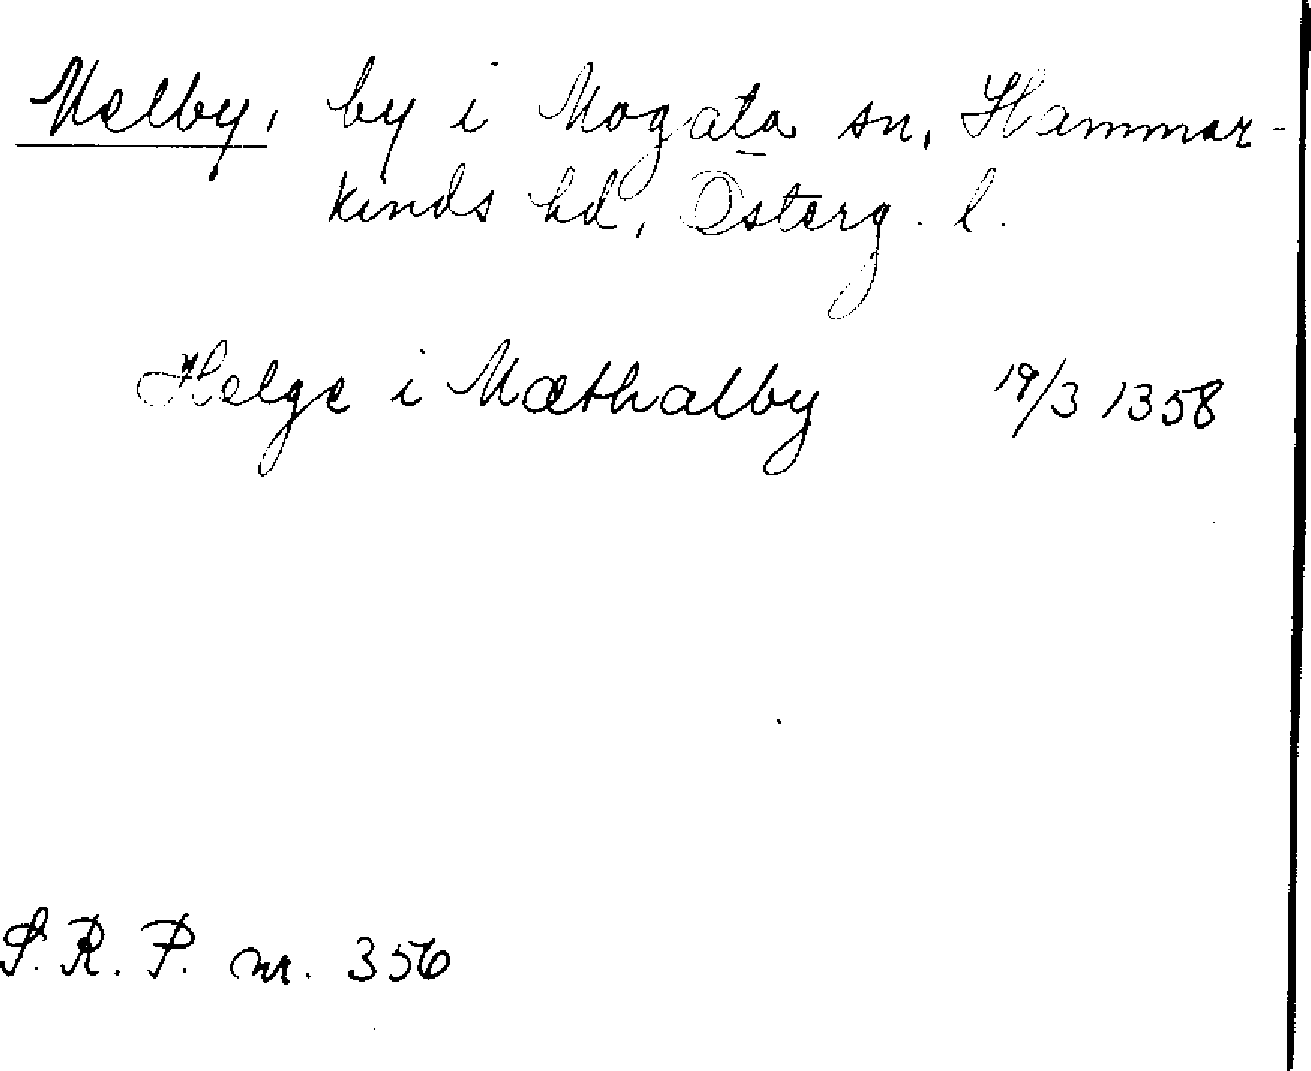 Melby, by i Mogata sn, Hammar-
kinds hd, Österg. l.
Helge i Mæthalby 19/3 1358
S. R. P. nr. 356